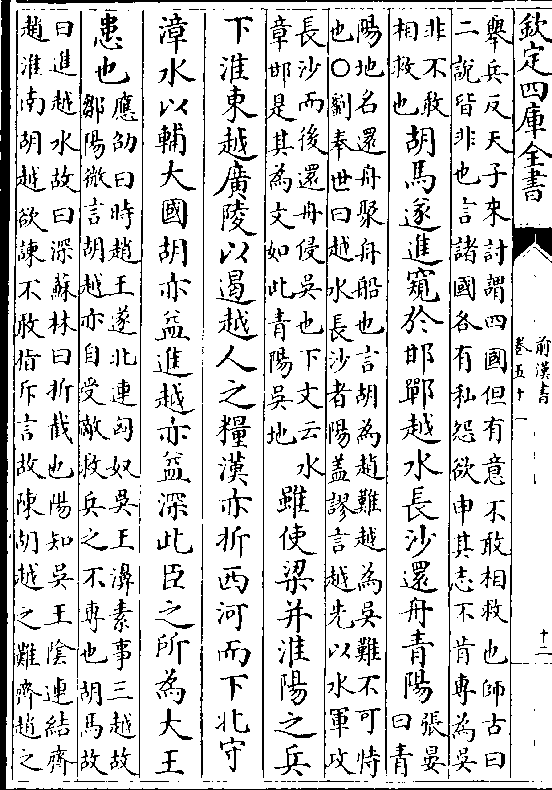 欽定四庫全書
前漢書
卷五十一
十二
舉兵反天子来討謂四國但有意不敢相救也師古曰
二說皆非也言諸國各有私怨欲申其志不肯專為吳
非不敢
相救也
胡馬遂進窺於邯鄲越水長沙還舟青陽
張晏
曰青
陽地名還舟聚舟船也言胡為趙難越為吳難不可恃
也〇劉奉世曰越水長沙者陽蓋謬言越先以水軍攻
長沙而後還舟侵吳也下文云水
章邯是其為文如此青陽吳地
雖使梁并淮陽之兵
下淮東越廣陵以遏越人之糧漢亦折西河而下北守
漳水以輔大國胡亦益進越亦益深此臣之所為大王
患也
應劭曰時趙王遂北連匈奴吳王濞素事三越故
鄒陽微言胡越亦自受敵救兵之不專也胡馬故
曰進越水故曰深蘇林曰折截也陽知吳王陰連結齊
趙淮南胡越欲諫不敢指斥言故陳胡越之難齊趙之